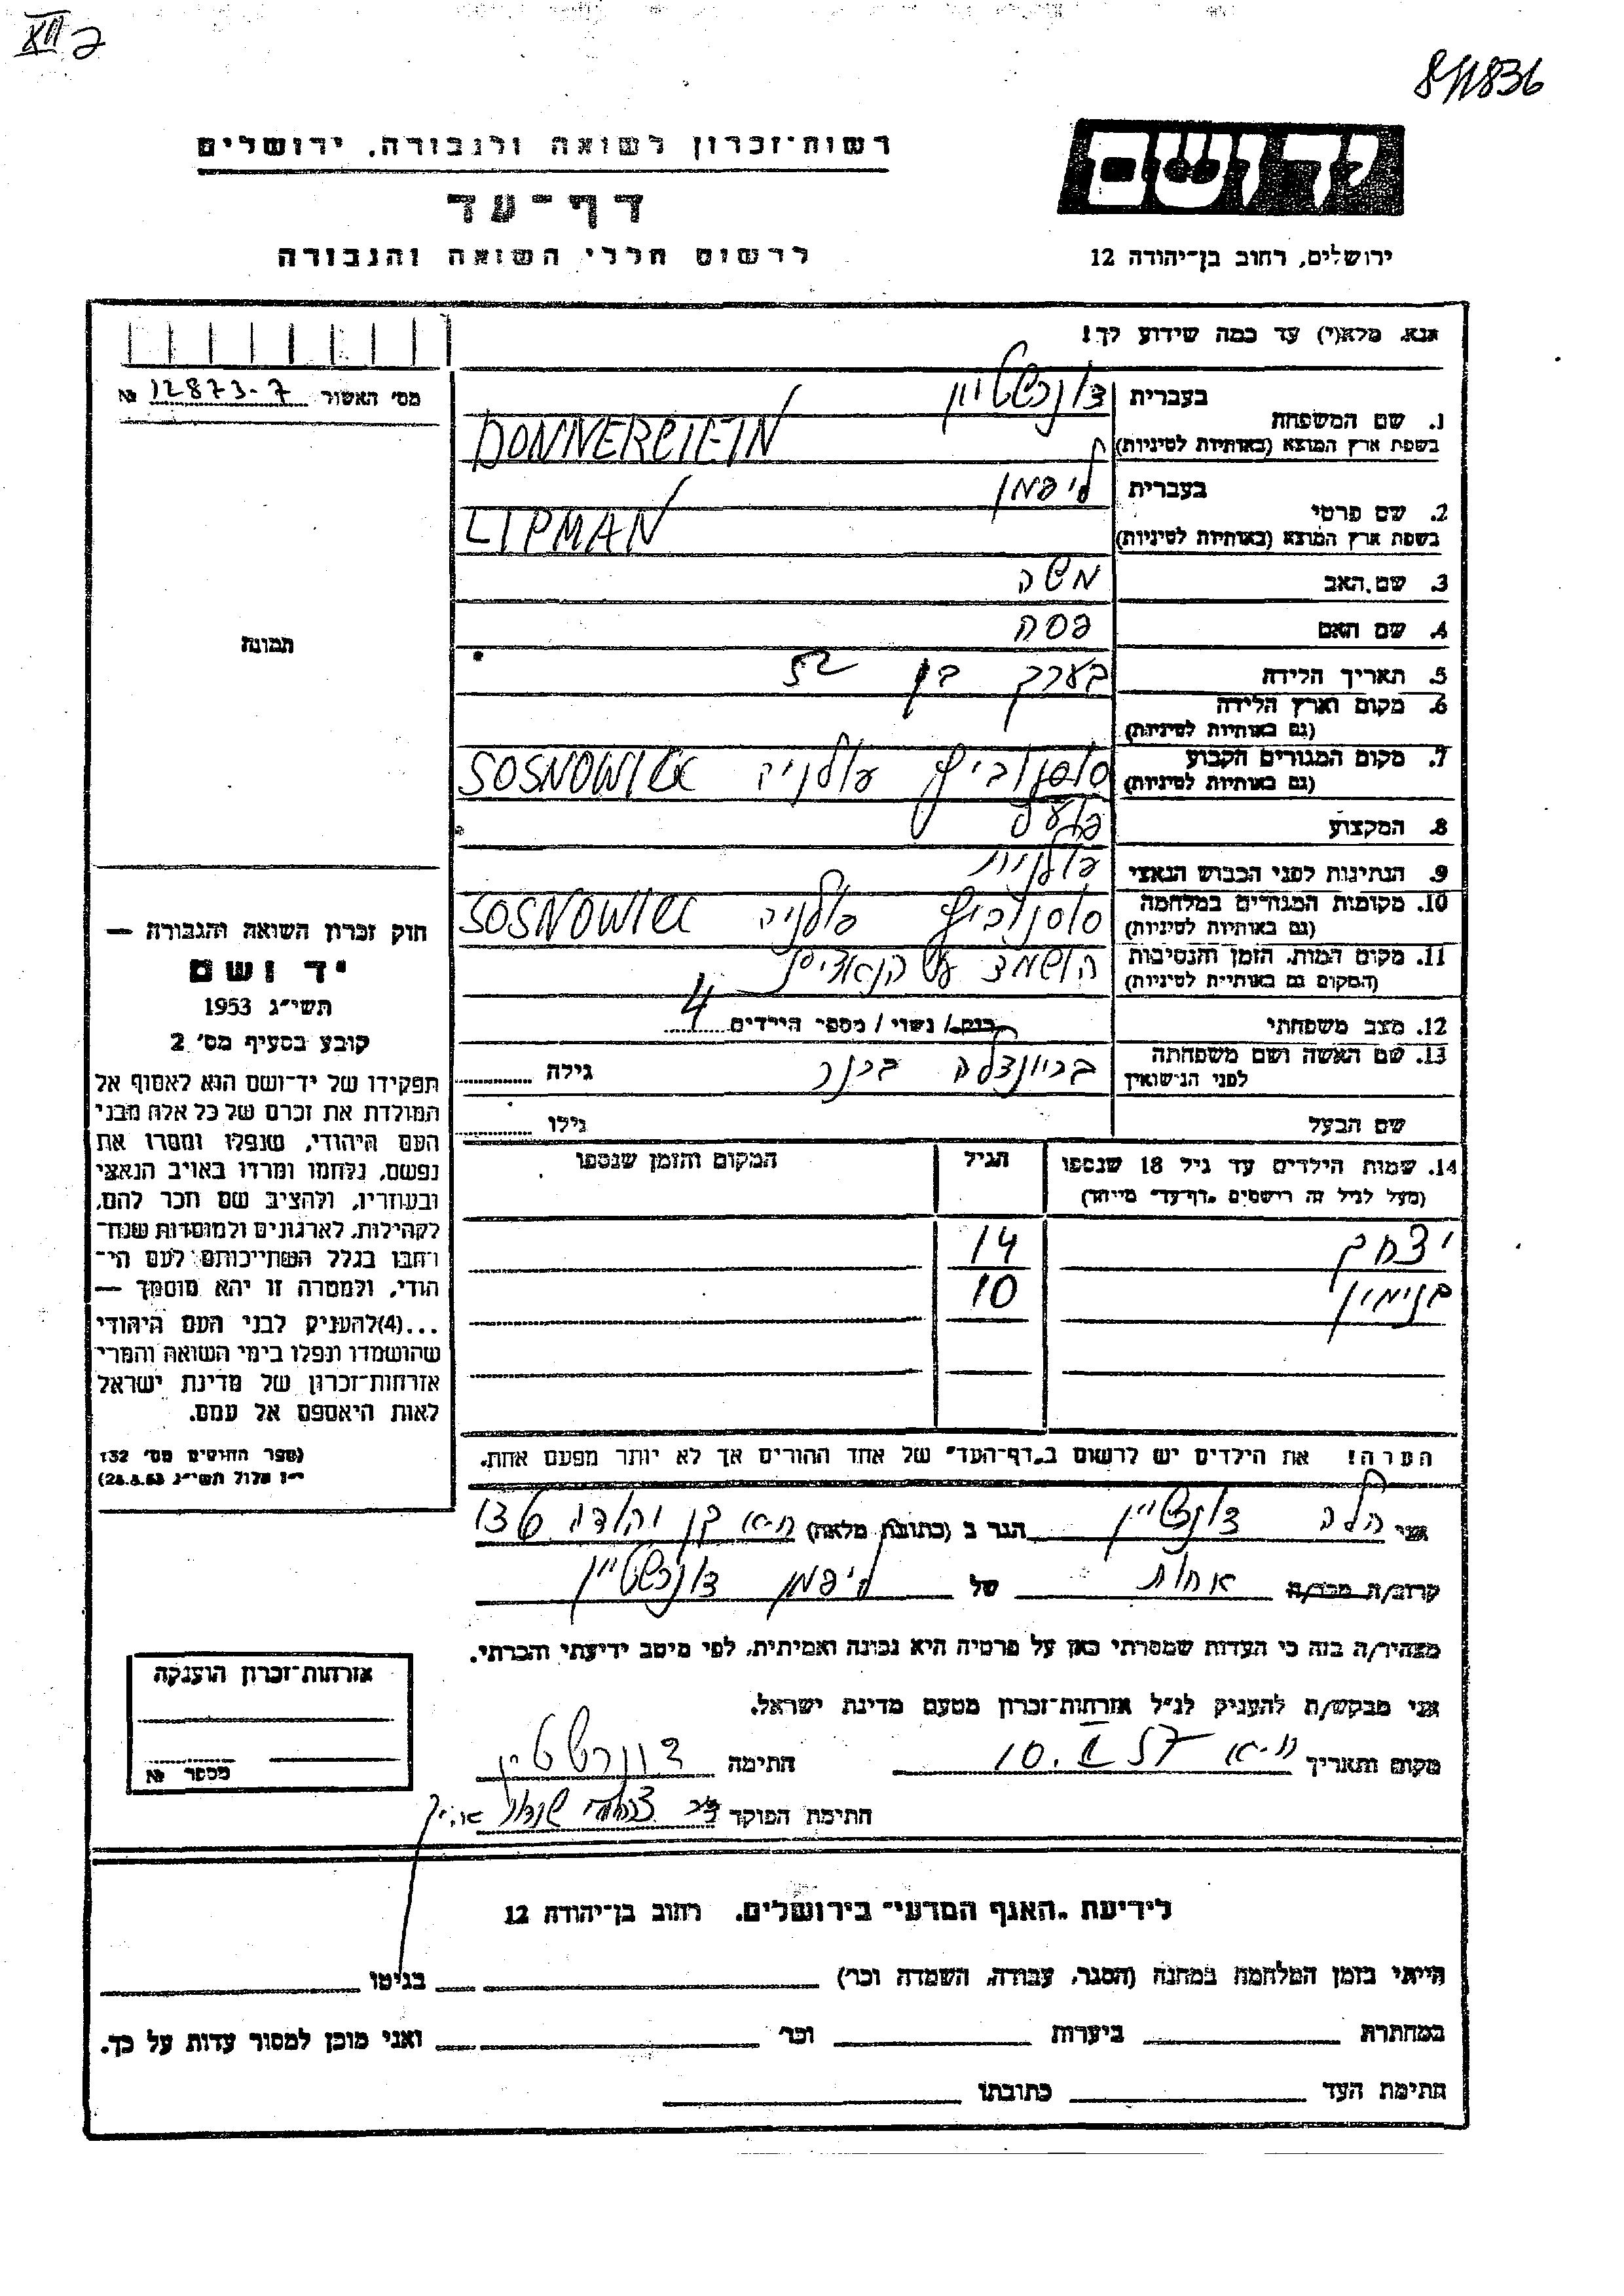 8/1836
רשות־זכרון לשואה ולגבורה, ירושלים
יד ושם
דף־עד
לרשום חללי השואה והגבורה
ירושלים, רחוב בן־יהודה 12
אנא מלא(י) עד כמה שידוע לך!
מס' האשור № 12873-7
בעברית
1. שם המשפחה
בשפת ארץ המוצא (באותיות לטיניות) DONNERCIEIN
בעברית ליפמן
2. שם פרטי
בשפת ארץ המוצא (באותיות לטיניות) LIPMAN
3. שם האב משה
4. שם האם פסה
5. תאריך הלידה בערך בן 52
6. מקום וארץ הלידה
(גם באותיות לטיניות)
7. מקום המגורים הקבוע סוסנוביץ פולניה SOSNOWICE
(גם באותיות לטיניות)
8. המקצוע פועל
9. הנתינות לפני הכבוש הנאצי פולנית
10. מקומות המגורים במלחמה סוסנוביץ פולניה SOSNOWICE
(גם באותיות לטיניות)
11. מקום המות, הזמן והנסיבות הושמד ע"י הנאצים
(המקום גם באותיות לטיניות)
12. מצב משפחתי רווק / נשוי / מספר הילדים 4
13. שם האשה ושם משפחתה לפני הנישואין גילה
שם הבעל גילו
תמונה
חוק זכרון השואה והגבורה —
יד ושם
תשי"ג 1953
קובע בסעיף מס' 2
תפקידו של יד־ושם הוא לאסוף אל
המולדת את זכרם של כל אלה מבני
העם היהודי, שנפלו ומסרו את
נפשם, נלחמו ומרדו באויב הנאצי
ובעוזריו, ולהציב שם וזכר להם,
לקהילות, לארגונים ולמוסדות שנח־
רחבו בגלל השתייכותם לעם הי־
הודי, ולמטרה זו יהא מוסמך —
...(4) להעניק לבני העם היהודי
שהושמדו ונפלו בימי השואה והמרי
אזרחות־זכרון של מדינת ישראל
לאות היאספם אל עמם.
(ספר החוקים מס' 132
י"ז אלול תשי"ג 28.8.53)
14. שמות הילדים עד גיל 18 שנספו הגיל המקום והזמן שנספו
(מעל לגיל זה רושמים „דף־עד" מיוחד)
יצחק 14
בנימין 10
הערה! את הילדים יש לרשום ב„דף־העד" של אחד ההורים אך לא יותר מפעם אחת.
אני הלה דונרשטיין הגר ב (כתובת מלאה) ת-א בן יהודה 136
קרוב/ה מכר/ה אחות של ליפמן דונרשטיין
מצהיר/ה בזה כי העדות שמסרתי כאן על פרטיה היא נכונה ואמיתית, לפי מיטב ידיעתי והכרתי.
אני מבקש/ת להעניק לנ"ל אזרחות־זכרון מטעם מדינת ישראל.
מקום ותאריך ת-א 10. 57 חתימה
חתימת הפוקד
אזרחות־זכרון הוענקה
מספר №
לידיעת „האגף המדעי" בירושלים. רחוב בן־יהודה 12
הייתי בזמן המלחמה במחנה (הסגר, עבודה, השמדה וכר') בגיטו
במחתרת ביערות וכר' ואני מוכן למסור עדות על כך.
חתימת העד כתובתו